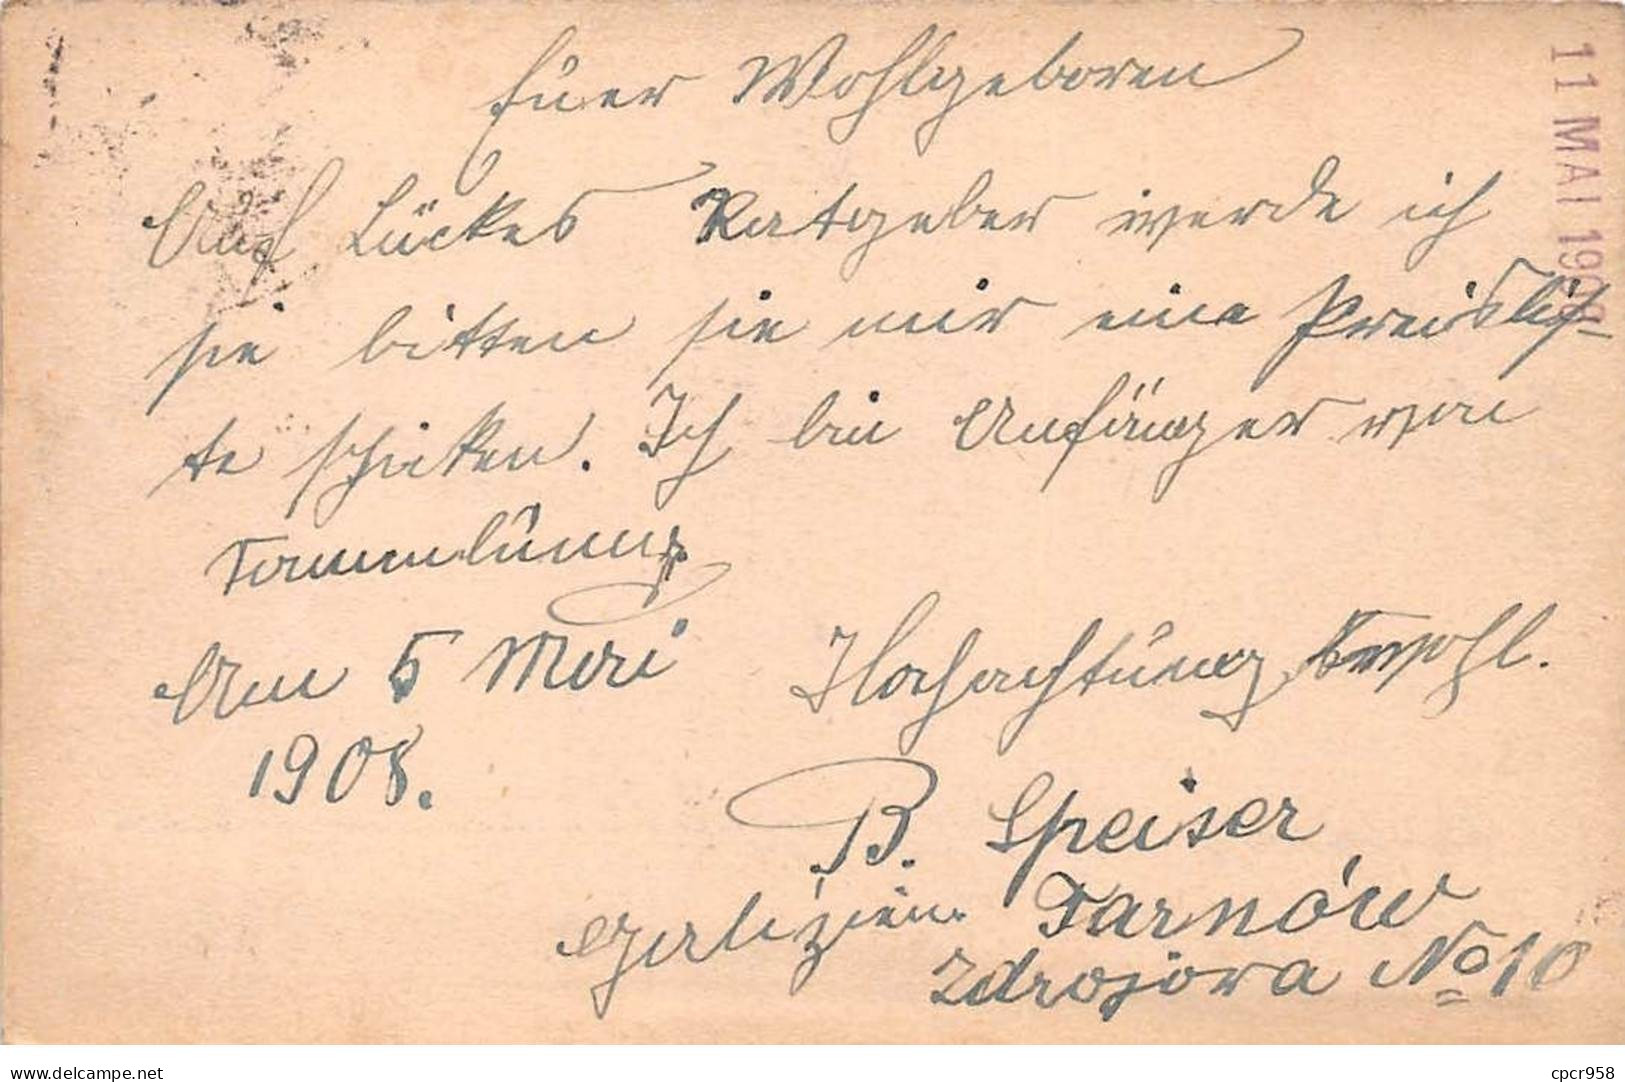 Euer Wohlgeboren
Auf Lückes Ratgeber werde ich
sie bitten sie mir eine Preislis-
te schicken. Ich bin Anfänger von
Sammlüng
Am 5 Mai
Hochachtüng
1908.
B. Speiser
Galizien Tarnów
Zdrojova No 10
11 MAI 1908
delcampe.net
cpcr958